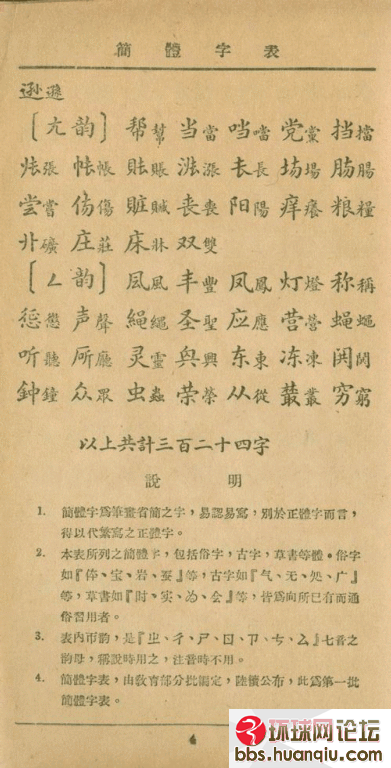 簡體字表
逊遜
〔ㄤ韵〕 帮幫 当當 噹 党黨 挡擋
張 帐帳 账賬 涨漲 長 场場 肠腸
尝嘗 伤傷 赃贓 丧喪 阳陽 痒癢 粮糧
礦 庄莊 床牀 双雙
〔ㄥ韵〕 風 丰豐 凤鳳 灯燈 称稱
惩懲 声聲 繩 圣聖 应應 营營 蝇蠅
听聽 廳 灵靈 興 东東 冻凍 鬨
鐘 众眾 虫蟲 荣榮 从從 叢 穷窮
以上共計三百二十四字
說明
1. 簡體字爲筆畫省簡之字，易認易寫，別於正體字而言，
得以代繁寫之正體字。
2. 本表所列之簡體字，包括俗字，古字，草書等體。俗字
如『体、宝、岩、蚕』等，古字如『气、无、処、广』
等，草書如『时、实、为、会』等，皆爲向所已有而通
俗習用者。
3. 表內市韵，是『ㄓ、ㄔ、ㄕ、ㄖ、ㄗ、ㄘ、ㄙ』七音之
韵母，稱說時用之，注音時不用。
4. 簡體字表，由敎育部分批制定，陸續公布，此爲第一批
簡體字表。
4
环球网论坛
bbs.huanqiu.com